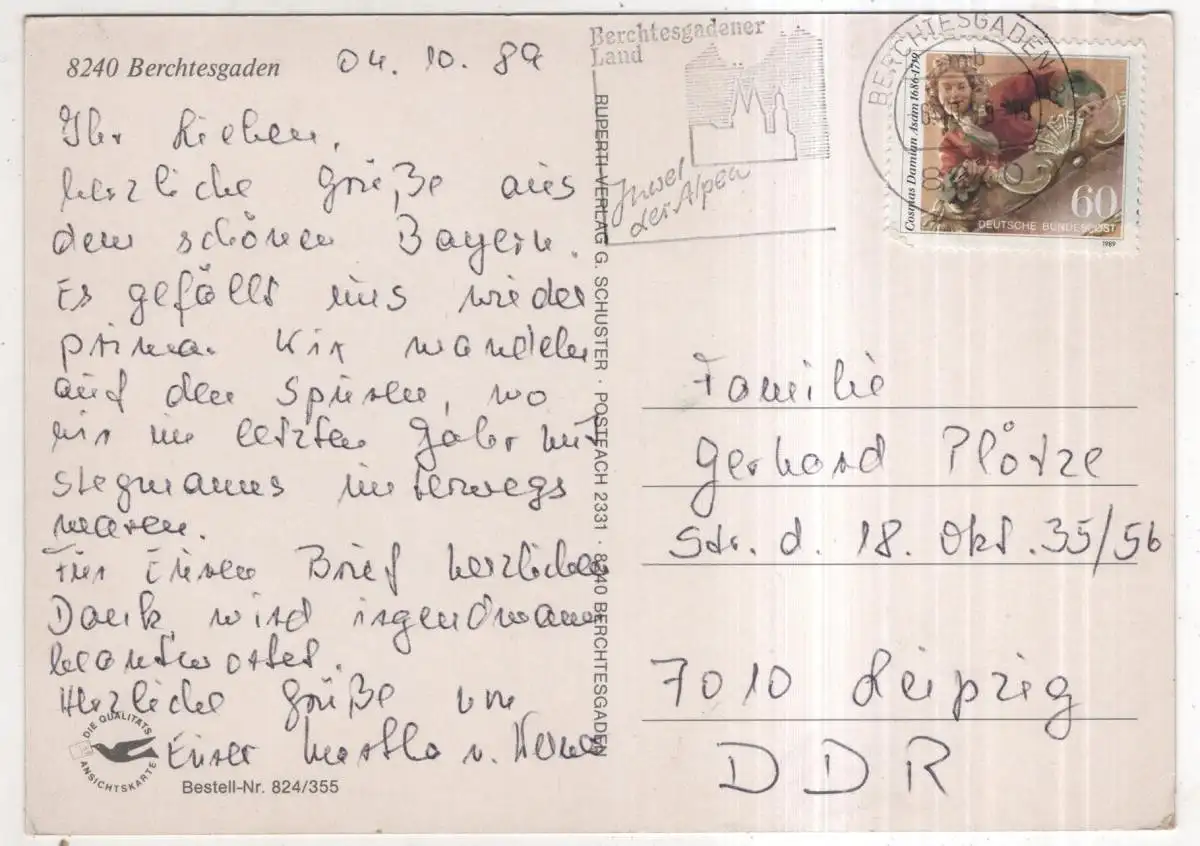 8240 Berchtesgaden
04. 10. 89
Ihr Lieben,
herzliche Grüße aus
dem schönen Bayern.
Es gefällt uns wieder
prima. Wir wandeln
auf den Spuren, wo
wir im letzten Jahr mit
Stegmanns unterwegs
waren.
Für Euren Brief herzlichen
Dank, wird irgendwann
beantwortet.
Herzliche Grüße von
Eurer Martha u.
DIE QUALITÄTS
ANSICHTSKARTE
Bestell-Nr. 824/355
RUPERTI-VERLAG G. SCHUSTER · POSTFACH 2331 · 8240 BERCHTESGADEN
Berchtesgadener
Land
Juwel
der Alpen
BERCHTESGADEN
mb
8240
Cosmas Damian Asam 1686-1739
60
DEUTSCHE BUNDESPOST
1989
Familie
Gerhard Plötze
Str. d. 18. Okt. 35/56
7010 Leipzig
DDR